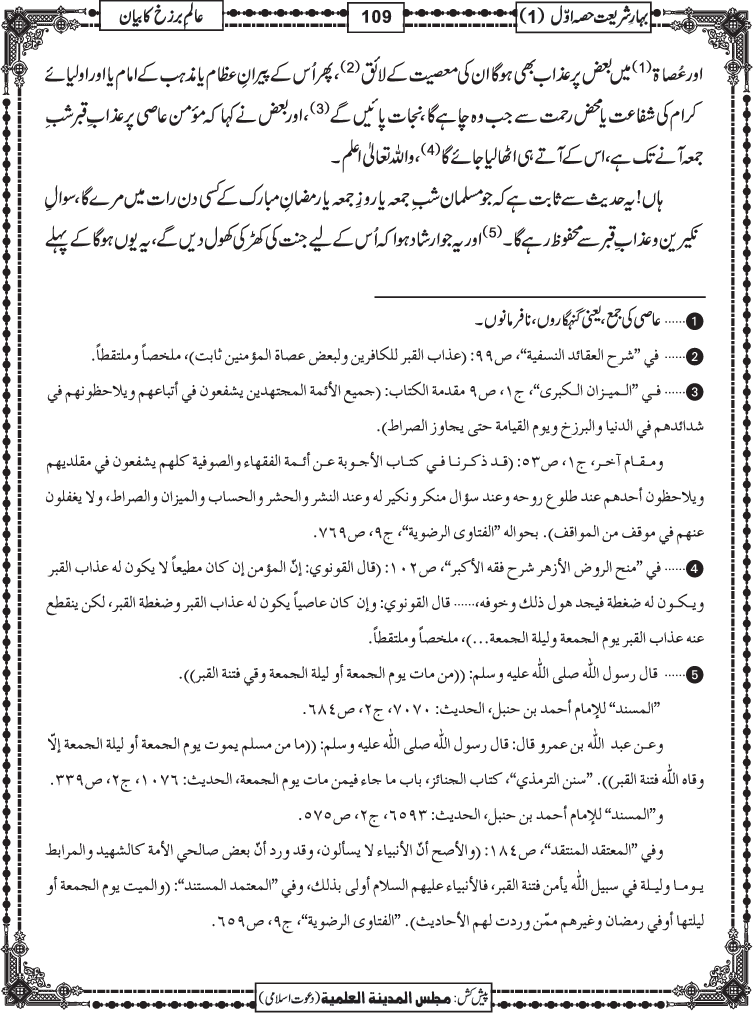 بہارِشریعت حصہ اوّل (1)
109
عالمِ برزخ کا بیان
اور عُصاۃ(1) میں بعض پر عذاب بھی ہوگا ان کی معصیت کے لائق(2)، پھر اُس کے پیرانِ عظام یا مذہب کے امام یا اور اولیائے
کرام کی شفاعت یا محض رحمت سے جب وہ چاہے گا، نجات پائیں گے(3)، اور بعض نے کہا کہ مؤمن عاصی پر عذابِ قبر شبِ
جمعہ آنے تک ہے، اس کے آتے ہی اٹھا لیا جائے گا(4)، واللہ تعالیٰ اعلم۔
ہاں! یہ حدیث سے ثابت ہے کہ جو مسلمان شبِ جمعہ یا روزِ جمعہ یا رمضانِ مبارک کے کسی دن رات میں مرے گا، سوالِ
نکیرین و عذابِ قبر سے محفوظ رہے گا۔(5) اور یہ جو ارشاد ہوا کہ اُس کے لیے جنت کی کھڑکی کھول دیں گے، یہ یوں ہوگا کے پہلے
1 ...... عاصی کی جمع، یعنی گنہگاروں، نافرمانوں۔
2 ...... في ”شرح العقائد النسفية“، ص٩٩: (عذاب القبر للكافرين ولبعض عصاة المؤمنين ثابت)، ملخصاً وملتقطاً.
3 ...... فـي ”الـميـزان الـكبرى“، ج١، ص٩ مقدمة الكتاب: (جميع الأئمة المجتهدين يشفعون في أتباعهم ويلاحظونهم في
شدائدهم في الدنيا والبرزخ ويوم القيامة حتى يجاوز الصراط).
ومـقـام آخـر، ج١، ص٥٣: (قـد ذكـرنـا فـي كتـاب الأجـوبة عـن أئـمة الفقهاء والصوفية كلهم يشفعون في مقلديهم
ويلاحظون أحدهم عند طلوع روحه وعند سؤال منكر ونكير له وعند النشر والحشر والحساب والميزان والصراط، ولا يغفلون
عنهم في موقف من المواقف). بحواله ”الفتاوى الرضوية“، ج٩، ص٧٦٩.
4 ...... في ”منح الروض الأزهر شرح فقه الأكبر“، ص١٠٢: (قال القونوي: إنّ المؤمن إن كان مطيعاً لا يكون له عذاب القبر
ويـكـون له ضغطة فيجد هول ذلك وخوفه،...... قال القونوي: وإن كان عاصياً يكون له عذاب القبر وضغطة القبر، لكن ينقطع
عنه عذاب القبر يوم الجمعة وليلة الجمعة...)، ملخصاً وملتقطاً.
5 ...... قال رسول اللّٰه صلى اللّٰه عليه وسلم: ((من مات يوم الجمعة أو ليلة الجمعة وقي فتنة القبر)).
”المسند“ للإمام أحمد بن حنبل، الحديث: ٧٠٧٠، ج٢، ص٦٨٤.
وعـن عبد اللّٰه بن عمرو قال: قال رسول اللّٰه صلى اللّٰه عليه وسلم: ((ما من مسلم يموت يوم الجمعة أو ليلة الجمعة إلّا
وقاه اللّٰه فتنة القبر)). ”سنن الترمذي“، كتاب الجنائز، باب ما جاء فيمن مات يوم الجمعة، الحديث: ١٠٧٦، ج٢، ص٣٣٩.
و”المسند“ للإمام أحمد بن حنبل، الحديث: ٦٥٩٣، ج٢، ص٥٧٥.
وفي ”المعتقد المنتقد“، ص١٨٤: (والأصح أنّ الأنبياء لا يسألون، وقد ورد أنّ بعض صالحي الأمة كالشهيد والمرابط
يـومـا وليـلـة في سبيل اللّٰه يأمن فتنة القبر، فالأنبياء عليهم السلام أولى بذلك، وفي ”المعتمد المستند“: (والميت يوم الجمعة أو
ليلتها أوفي رمضان وغيرهم ممّن وردت لهم الأحاديث). ”الفتاوى الرضوية“، ج٩، ص٦٥٩.
پیش کش: مجلس المدينة العلمية (دعوتِ اسلامی)